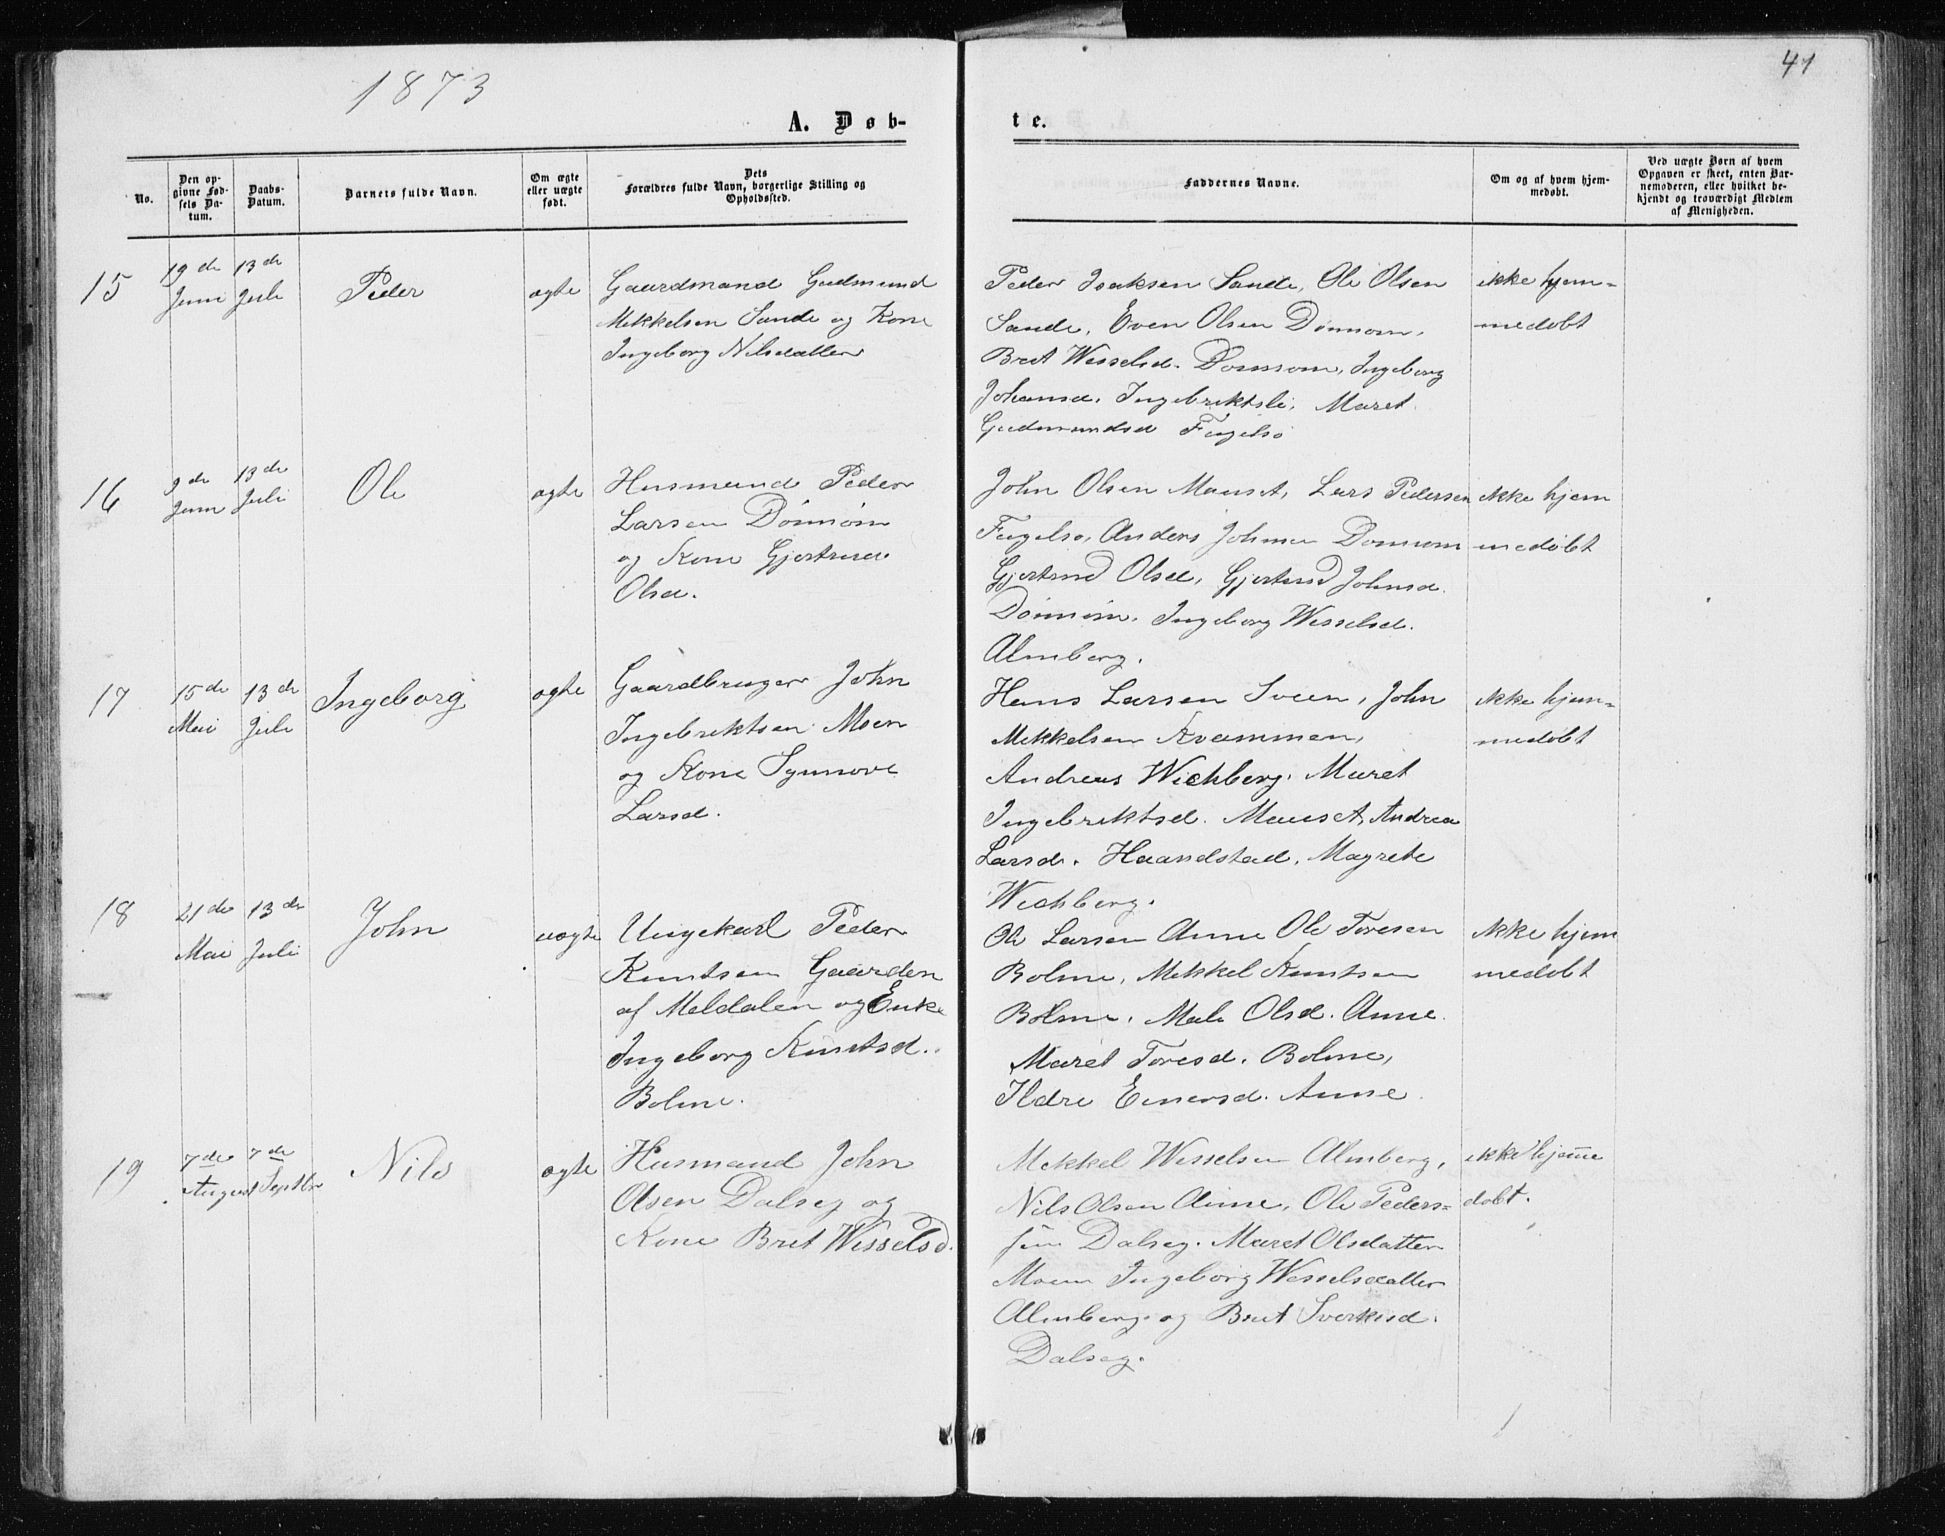 1873
41
A. Døb-
te.
No.
Den op-
givne Fød-
sels Da-
tum.
Daabs-
Datum.
Barnets fulde Navn.
Om ægte
eller uægte
født.
Dets
Forældres fulde Navn, borgerlige Stilling og
Opholdssted.
Faddernes Navne.
Om og af hvem hjem-
medøbt.
Ved uægte Børn af hvem
Opgaven er skeet, enten Bar-
nemoderen, eller hvilket be-
kjendt og troværdigt Medlem
af Menigheden.
15
19de
Juni
13de
Juli
Peder
ægte
Gaardmand Gudmund
Mikkelsen Sande og Kone
Ingeborg Nilsdatter
Peder Isaksen Sande, Ole Olsen
Sande, Even Olsen Dønnom,
Bret Wesselsd. Dønnom, Ingeborg
Johansd. Ingebriktsli, Maret
Gudmundsd Fugelsø
ikke hjem-
medøbt
16
9de
Juni
13de
Juli
Ole
ægte
Husmand Peder
Larsen Dønnom
og Kone Gjertrud
Olsd.
John Olsen Mauset, Lars Pedersen
Fugelsø, Anders Johnsen Dønnom
Gjertrud Olsd, Gjertrud Johnsd.
Dønnom, Ingeborg Wesselsd.
Almberg.
ikke hjem
medøbt
17
15de
Mai
13de
Juli
Ingeborg
ægte
Gaardbruger John
Ingebriktsen Moen
og Kone Synnøve
Larsd.
Hans Larsen Sveen, John
Mikkelsen Kvammen,
Andreas Wichberg. Maret
Ingebriktsd. Mauset, Andrea
Larsd. Haandstad, Magrete
Wichberg.
ikke hjem-
medøbt
18
21de
Mai
13de
Juli
John
uægte
Ungekarl Peder
Knutsen Gaarden
af Meldalen og Enke
Ingeborg Knutsd.
Bolme.
Ole Larsen Aune Ole Toresen
Bolme, Mikkel Knutsen
Bolme, Male Olsd. Aune
Maret Toresd. Bolme,
Ildri Einersd. Aune
ikke hjem
medøbt
19
7de
August
7de
Septbr
Nils
ægte
Husmand John
Olsen Dalseg og
Kone Bret Wesselsd.
Mikkel Wesselsen Almberg,
Nils Olsen Aune, Ole Peders-
sen Dalseg. Maret Olsdatter
Moen Ingeborg Wesselsdatter
Almberg og Bret Sverkisd.
Dalseg.
ikke hjemme
døbt.